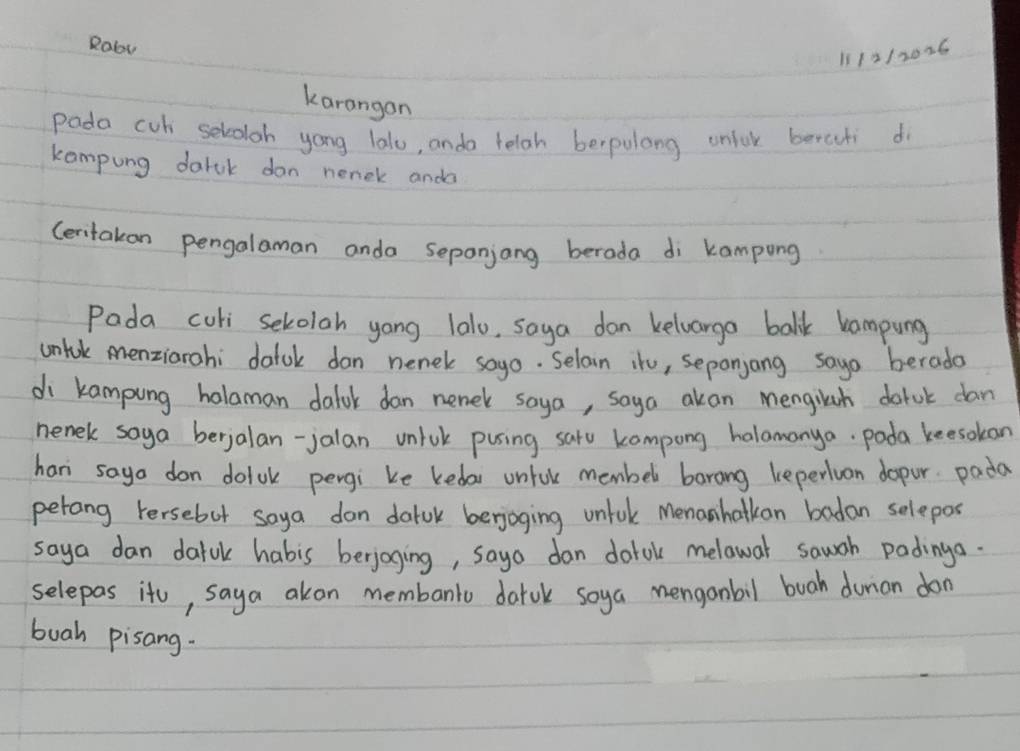 Rabu
11/2/2026
Karangan
Pada cuti sekolah yang lalu, anda telah berpulang untuk bercuti di
kampung datuk dan nenek anda
Ceritakan pengalaman anda sepanjang berada di kampung.
Pada cuti sekolah yang lalu, saya dan keluarga balik kampung
untuk menziarahi datuk dan nenek saya. Selain itu, sepanjang saya berada
di kampung halaman datuk dan nenek saya, saya akan mengikuti datuk dan
nenek saya berjalan-jalan untuk pusing satu kampung halamanya. pada keesokan
hari saya dan datuk pergi ke kedai untuk membeli barang keperluan dapur. pada
petang tersebut saya dan datuk berjoging untuk menanihatkan badan selepas
saya dan datuk habis berjoging, saya dan datuk melawat sawah padinya.
selepas itu, saya akan membantu datuk saya menganbil buah durian dan
buah pisang.